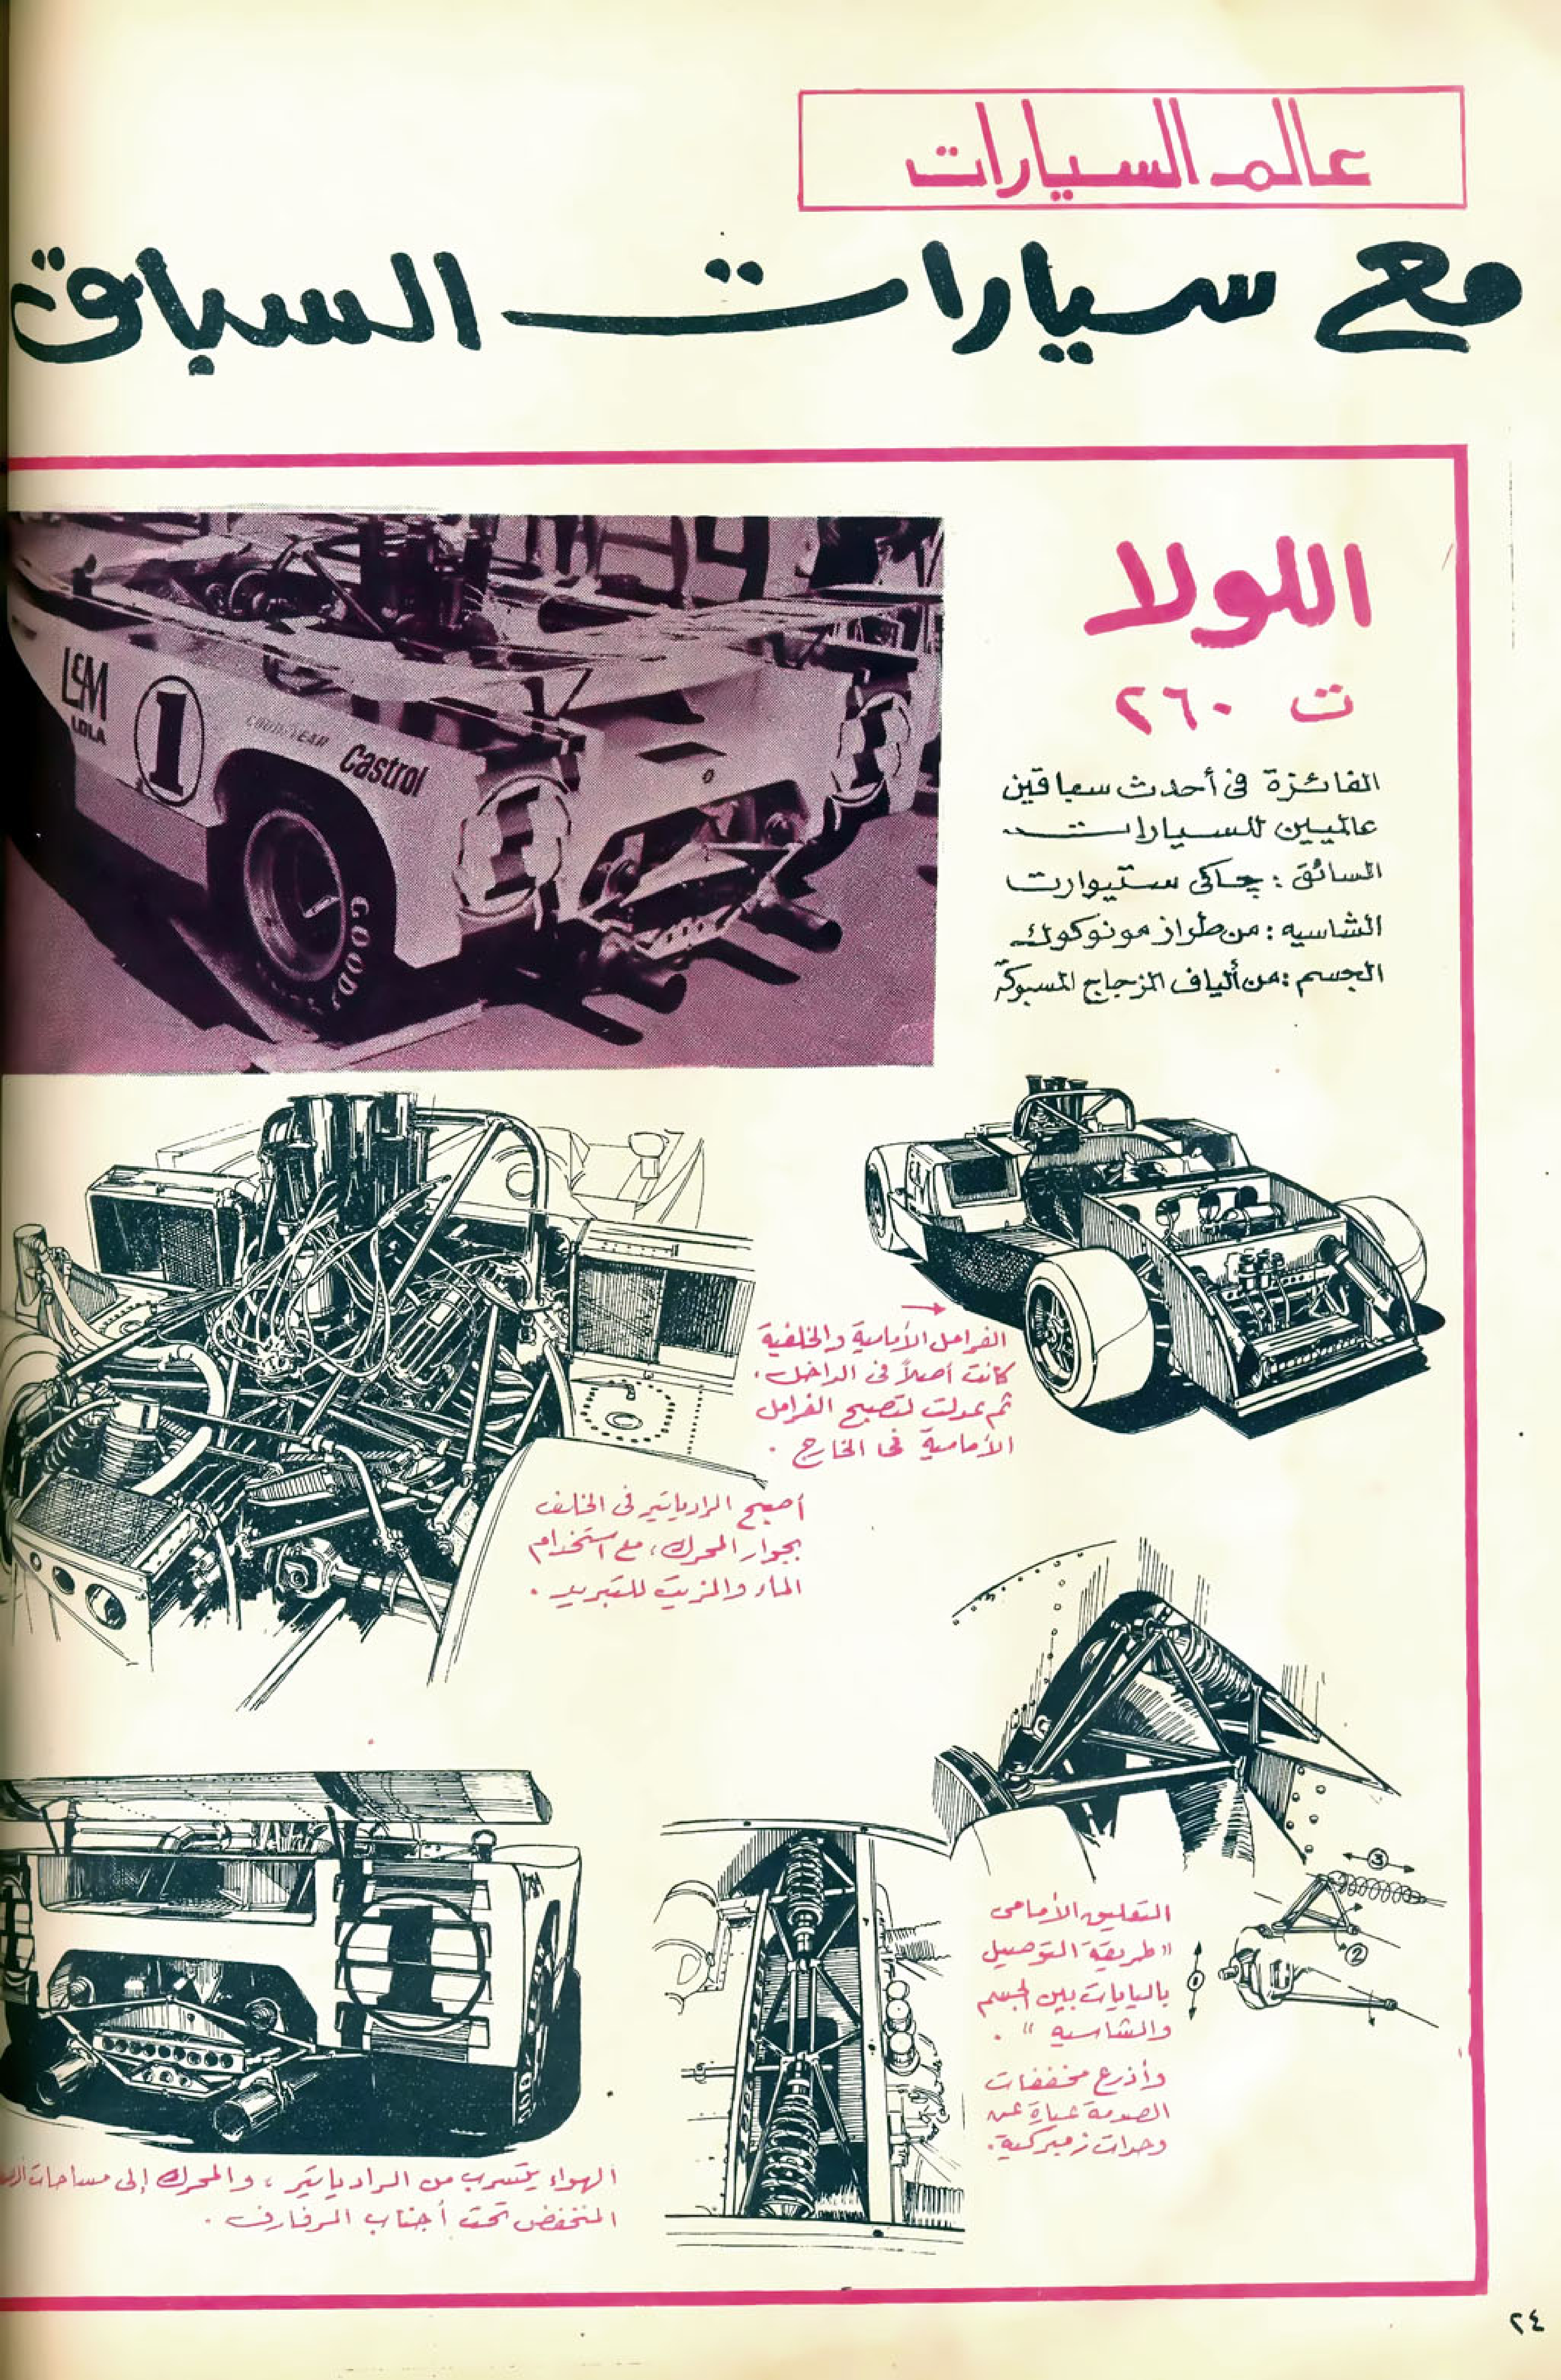 عالم السيارات
مع سيارات السباق
اللولا
ت ٢٦٠
الفائزة في أحدث سباقين
عالميين للسيارات
السائق : جاكى ستيوارت
الشاسيه : من طراز مونوكوك
الجسم : من ألياف الزجاج المسبوكة
L&M
LOLA
1
GOODYEAR
Castrol
1
GOOD
الفرامل الأمامية والخلفية
كانت أصلاً فى الداخل ،
ثم عدلت لتصبح الفرامل
الأمامية فى الخارج .
أصبح الرادياتير فى الخلف
بجوار المحرك ، مع استخدام
الماء والزيت للتبريد .
3
2
1
التعليق الأمامى
" طريقة التوصيل
باليايات بين الجسم
والشاسيه " .
وأذرع مخففات
الصدمة عبارة عن
وحدات زمبركية .
1
الهواء يتسرب من الرادياتير ، والمحرك إلى مساحات
المنخفض تحت أجناب الرفارف .
٢٤